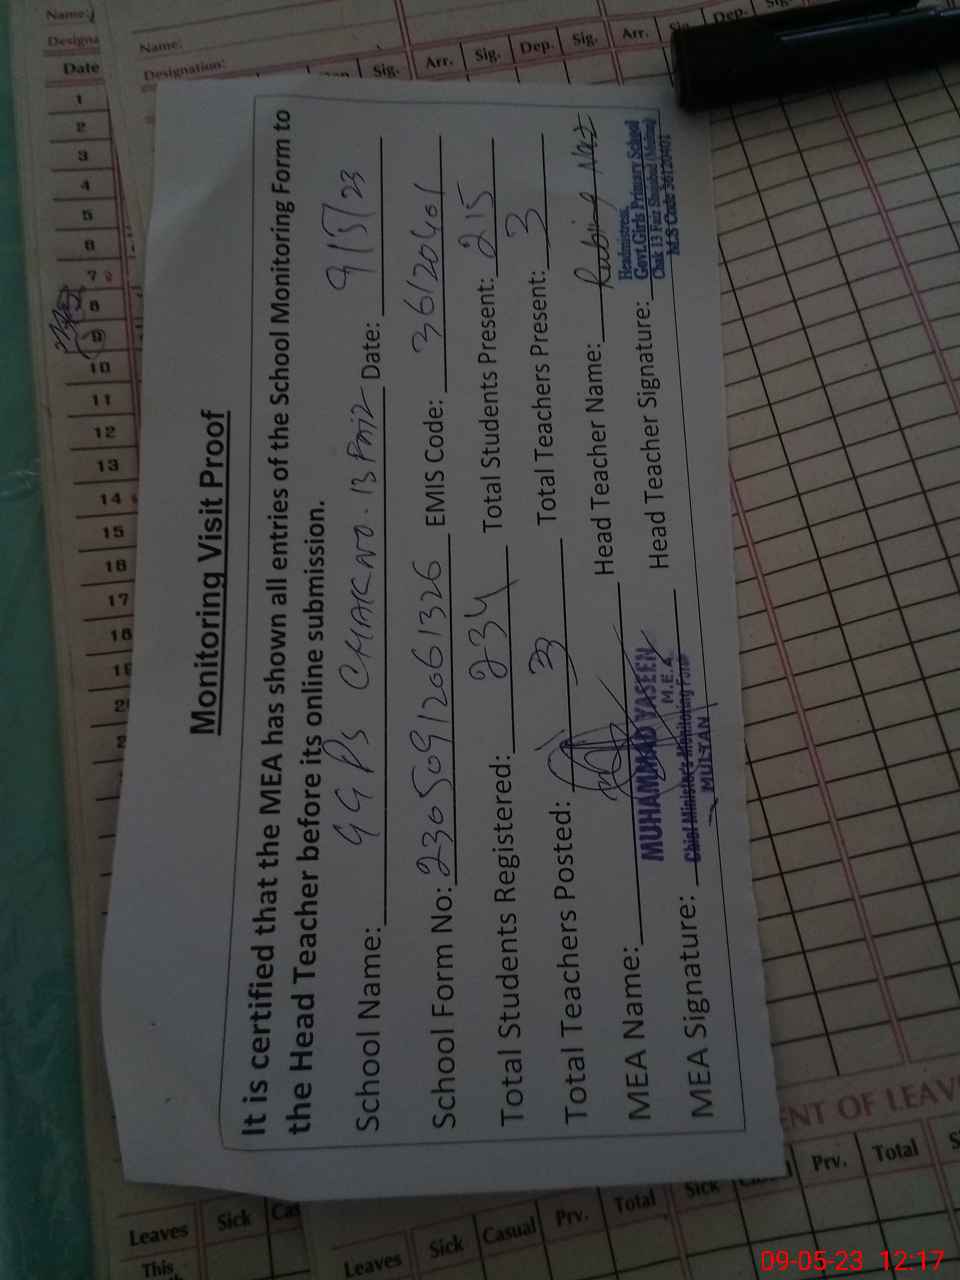 Monitoring Visit Proof
It is certified that the MEA has shown all entries of the School Monitoring Form to
the Head Teacher before its online submission.
School Name: GGPS CHAK NO. 13 Faiz Date: 9/5/23
School Form No: 23050912061326 EMIS Code: 36120401
Total Students Registered: 234 Total Students Present: 215
Total Teachers Posted: 3 Total Teachers Present: 3
MEA Name: Head Teacher Name: Rubina Naz
MEA Signature: Head Teacher Signature:
MUHAMMAD YASEEN
M.E.A
Chief Minister's Monitoring Force
MULTAN
Headmistress
Govt. Girls Primary School
Chak 13 Faiz Shujabad (Multan)
M.S Code 36120401
Name:
Designa
Date
1
2
3
4
5
6
7
8
9
10
11
12
13
14
15
16
17
18
Name:
Designation:
Sig. Arr. Sig. Dep. Sig. Arr. Sig. Dep. Sig.
NT OF LEAV
Prv. Total
Leaves Sick
This
Leaves Sick Casual Prv. Total Sick
09-05-23 12:17